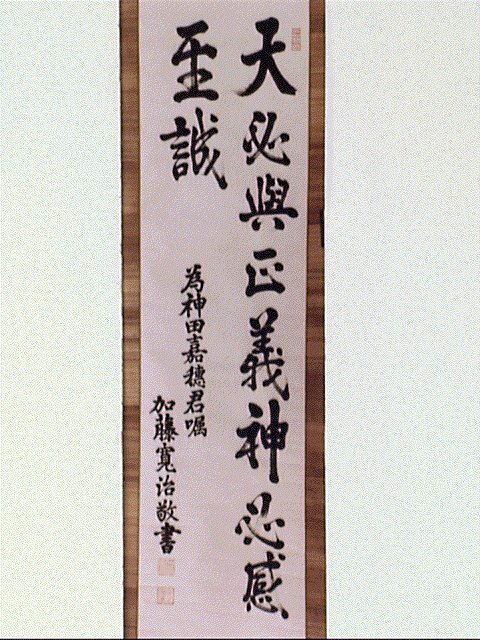 天必與正義神必感
至誠
為神田嘉穗君嘱
加藤寛治敬書